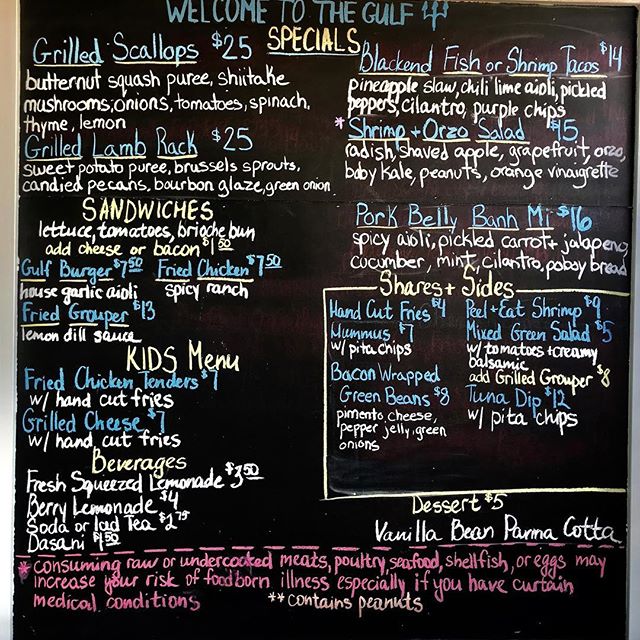 WELCOME TO THE GULF
SPECIALS
Grilled Scallops $25
butternut squash puree, shiitake
mushrooms, onions, tomatoes, spinach,
thyme, lemon
Grilled Lamb Rack $25
sweet potato puree, brussels sprouts,
candied pecans, bourbon glaze, green onion
Blackend Fish or Shrimp Tacos $14
pineapple slaw, chili lime aioli, pickled
peppers, cilantro, purple chips
* Shrimp + Orzo Salad $15
radish, shaved apple, grapefruit, orzo,
baby kale, peanuts, orange vinaigrette
Pork Belly Banh Mi $16
spicy aioli, pickled carrot + jalapeno,
cucumber, mint, cilantro, poboy bread
SANDWICHES
lettuce, tomatoes, brioche bun
add cheese or bacon $1.50
Gulf Burger $7.50 Fried Chicken $7.50
house garlic aioli spicy ranch
Fried Grouper $13
lemon dill sauce
KIDS Menu
Fried Chicken Tenders $7
w/ hand cut fries
Grilled Cheese $7
w/ hand cut fries
Beverages
Fresh Squeezed Lemonade $3.50
Berry Lemonade $4
Soda or Iced Tea $2.75
Dasani $1.50
Shares + Sides
Hand Cut Fries $4
Mummus $7
w/ pita chips
Bacon Wrapped
Green Beans $8
pimento cheese,
pepper jelly, green
onions
Peel + Eat Shrimp $9
Mixed Green Salad $5
w/ tomatoes + creamy
balsamic
add Grilled Grouper $8
Tuna Dip $12
w/ pita chips
Dessert $5
Vanilla Bean Panna Cotta
* consuming raw or undercooked meats, poultry, seafood, shellfish, or eggs may
increase your risk of foodborn illness especially if you have curtain
medical conditions ** contains peanuts